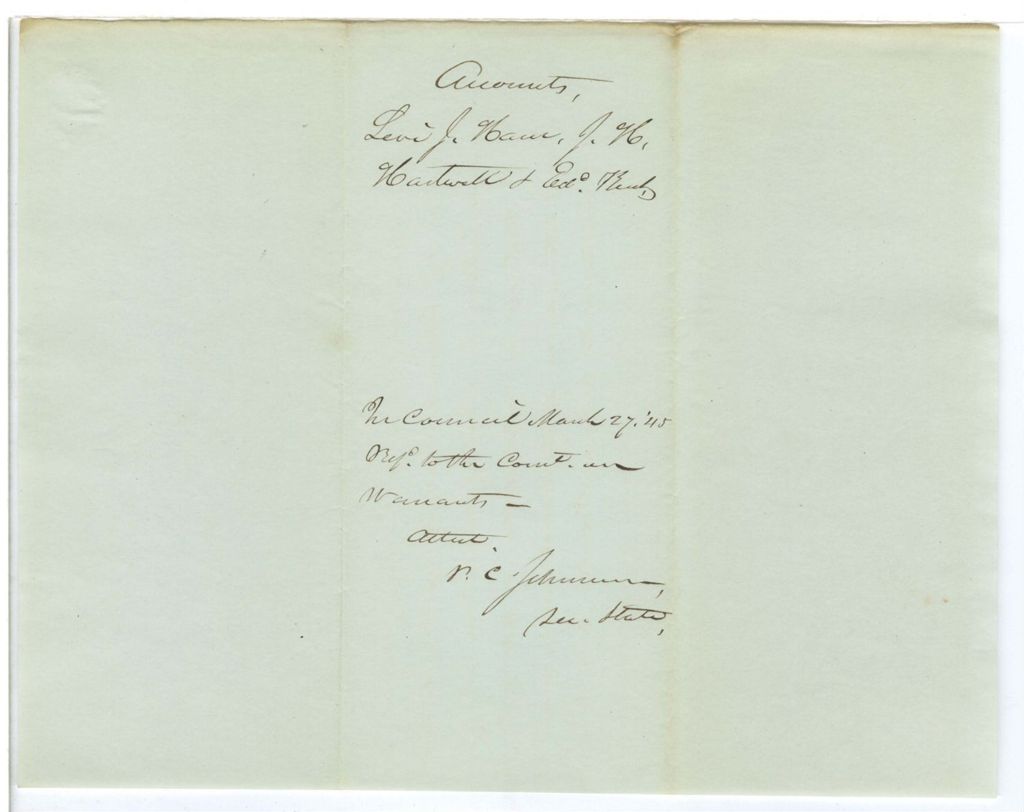 Accounts,
Levi J. Ham, J. H.
Hartwell & Edᵈ. Kent,
In Council March 27, '45
Refᵈ. to the Comt. on
Warrants –
Attest.
P. C. Johnson,
Sec. State,